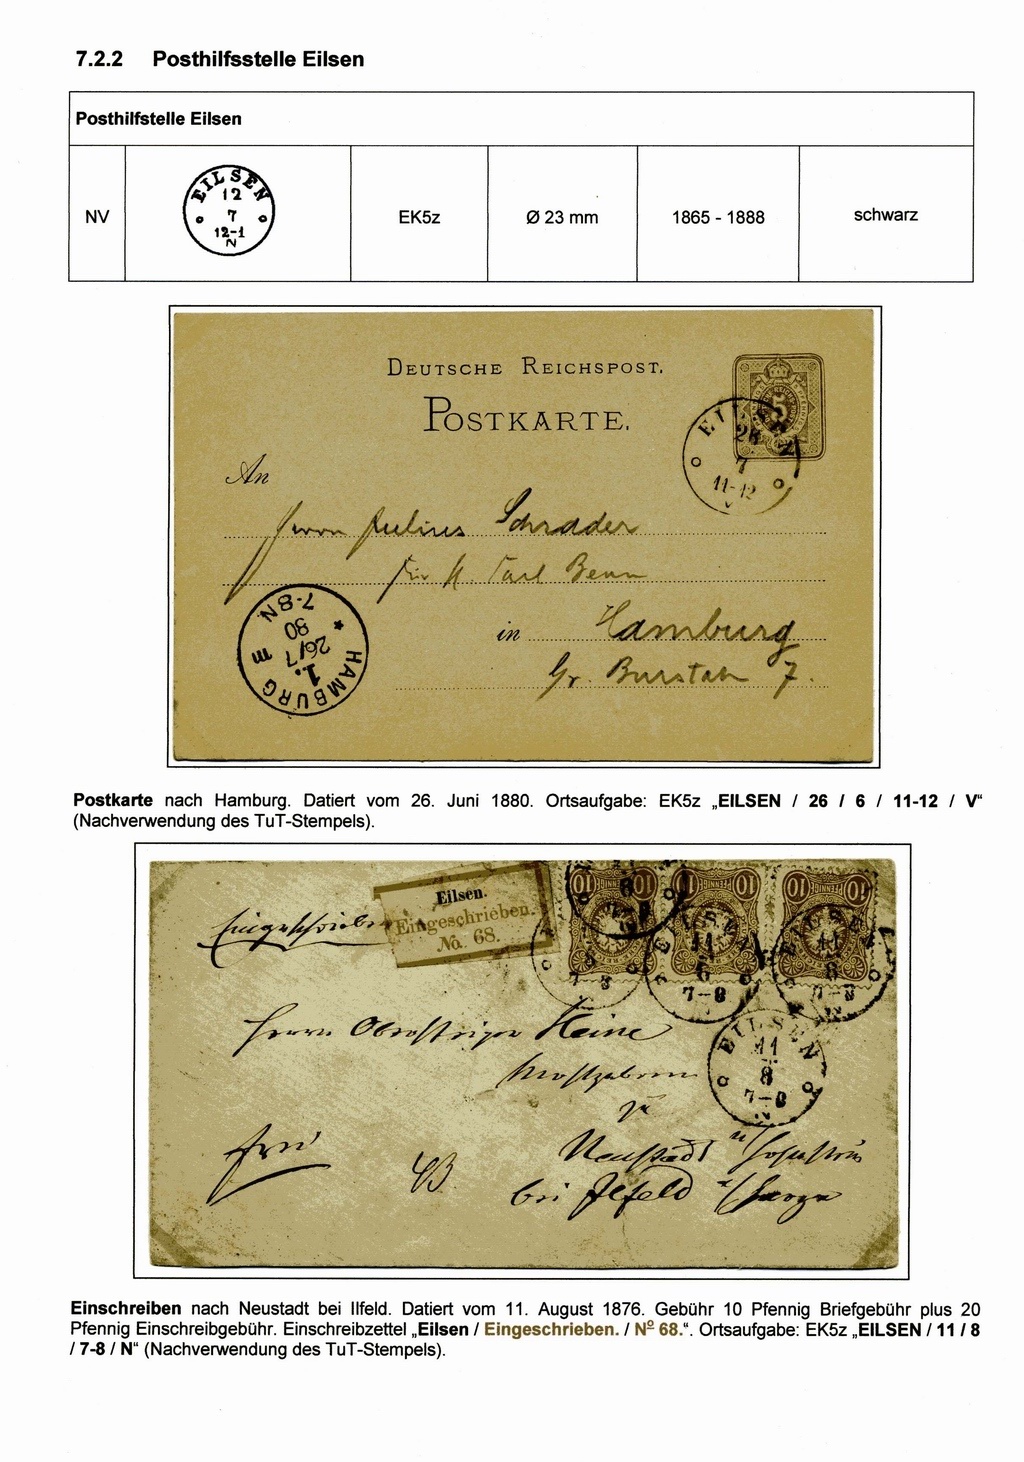 7.2.2 Posthilfsstelle Eilsen
Posthilfstelle Eilsen
NV
EILSEN
12
7
12-1
N
EK5z
Ø 23 mm
1865 - 1888
schwarz
DEUTSCHE REICHSPOST.
POSTKARTE.
EILSEN
26
7
11-12
V
An
Herrn Julius Schrader
Carl
in Hamburg
Gr. Burstah 7.
HAMBURG
1.
26/7
80
7-8N
Postkarte nach Hamburg. Datiert vom 26. Juni 1880. Ortsaufgabe: EK5z „EILSEN / 26 / 6 / 11-12 / V“
(Nachverwendung des TuT-Stempels).
Eingeschrieben
Eilsen.
Eingeschrieben.
No. 68.
10 PFENNIG 10
10 PFENNIG 10
10 PFENNIG 10
EILSEN
11
8
7-8
EILSEN
11
8
7-8
N
Herrn Heine
zu
Neustadt u/
bei Ilfeld a/Harze
frei
EILSEN
11
8
7-8
N
Einschreiben nach Neustadt bei Ilfeld. Datiert vom 11. August 1876. Gebühr 10 Pfennig Briefgebühr plus 20
Pfennig Einschreibgebühr. Einschreibzettel „Eilsen / Eingeschrieben. / Nº 68.“. Ortsaufgabe: EK5z „EILSEN / 11 / 8
/ 7-8 / N“ (Nachverwendung des TuT-Stempels).